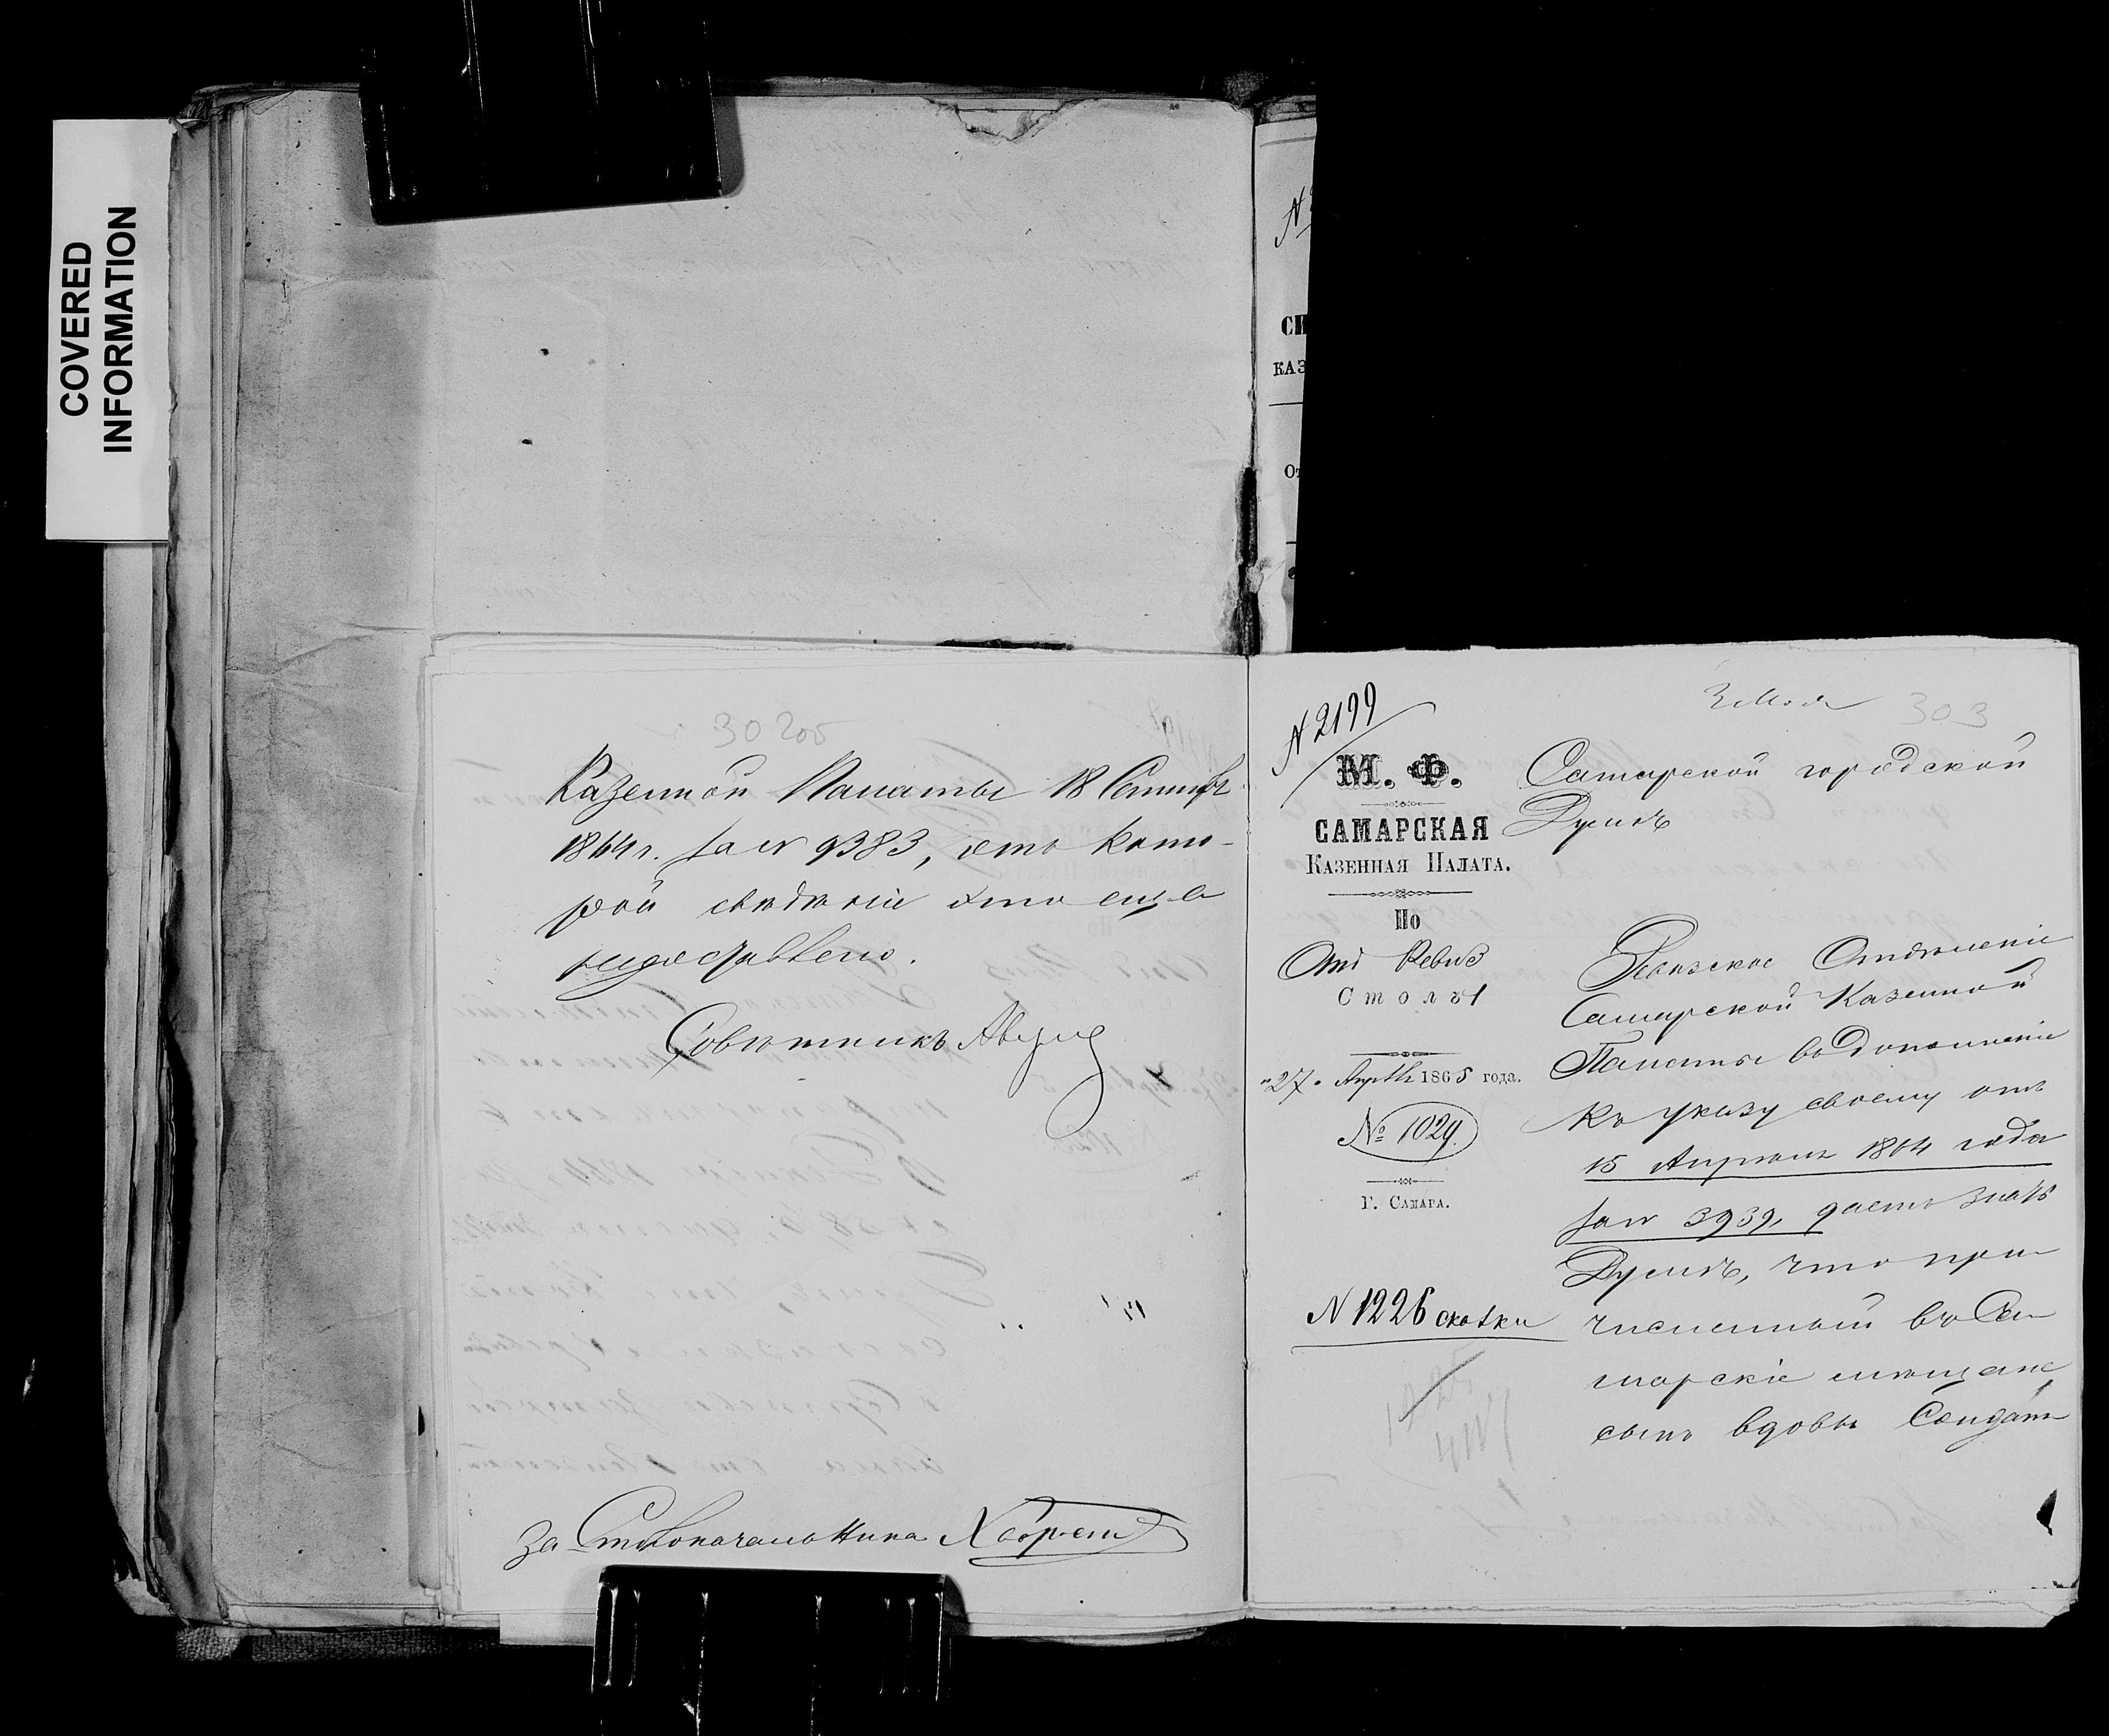 COVERED
INFORMATION
30 205
Казенной Палаты 18 Сентябр
1864 г. за № 9383, отъ кото-
рой свѣдѣніе это еще
недоставлено.
Совѣтникъ
За Столоначальника
СИ
КАЗ
От
N 2199
3 Мая
303
М. Ф.
САМАРСКАЯ
КАЗЕННАЯ ПАЛАТА.
По
Отд Ревиз
Столъ 1
"27" Апрѣл 1865 года.
№ 1029
Г. САМАРА.
N 1226 сказки
Самарской городской
Думѣ
Ревизское Отдѣленіе
Самарской Казенной
Палаты въ дополненіе
къ указу своему отъ
15 Апрѣля 1864 года
за № 3939, даетъ знать
Думѣ, что при-
численный въ Са-
марскіе мѣщане
сынъ вдовы Солдат